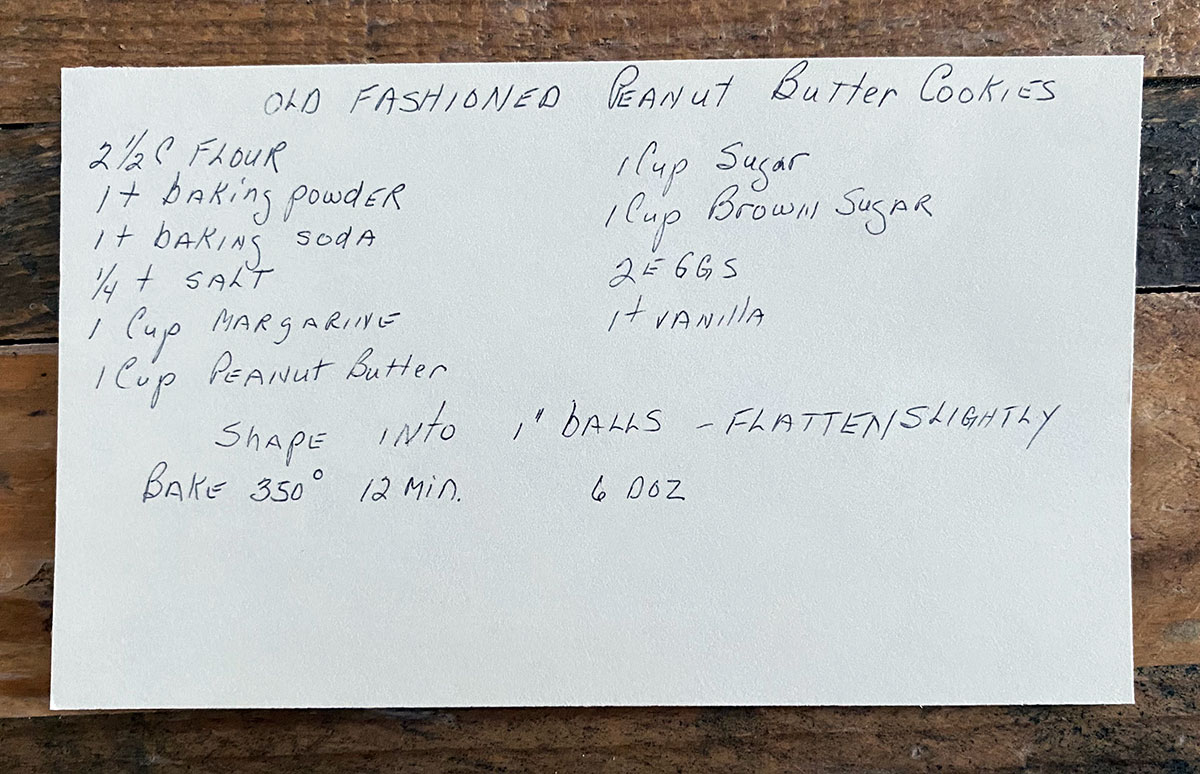 OLD FASHIONED PEANUT BUTTER COOKIES
2 1/2 C FLOUR
1 t baKing powdER
1 t baKING SodA
1/4 t SALT
1 Cup MARGARINE
1 Cup PEANut Butter
1 Cup Sugar
1 Cup BROWN SugAR
2 EGGS
1 t VANillA
ShAPE INto 1" bALLS - FLATTEN SLIGHTLY
BAKE 350° 12 MiN. 6 DOZ